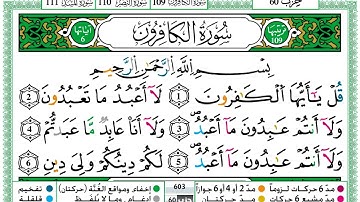 حزب 60
109 سورة الكافرون
110 سورة النصر
111 سورة المسد
ترتيبها 109
سُورَةُ الكَافِرُونَ
آياتها 6
بِسْمِ ٱللَّهِ ٱلرَّحْمَٰنِ ٱلرَّحِيمِ
قُلْ يَٰٓأَيُّهَا ٱلْكَٰفِرُونَ 1 لَآ أَعْبُدُ مَا تَعْبُدُونَ 2
وَلَآ أَنتُمْ عَٰبِدُونَ مَآ أَعْبُدُ 3 وَلَآ أَنَا۠ عَابِدٌ مَّا عَبَدتُّمْ 4
وَلَآ أَنتُمْ عَٰبِدُونَ مَآ أَعْبُدُ 5 لَكُمْ دِينُكُمْ وَلِىَ دِينِ 6
مدّ 6 حركات لزوماً مدّ 2 أو 4 أو 6 جوازاً
603
إخفاء ومواقع الغُنَّة (حركتان) تفخيم
مدّ مشبع 6 حركات مدّ حركتان
إدغام، وما لا يُلفظ قلقلة